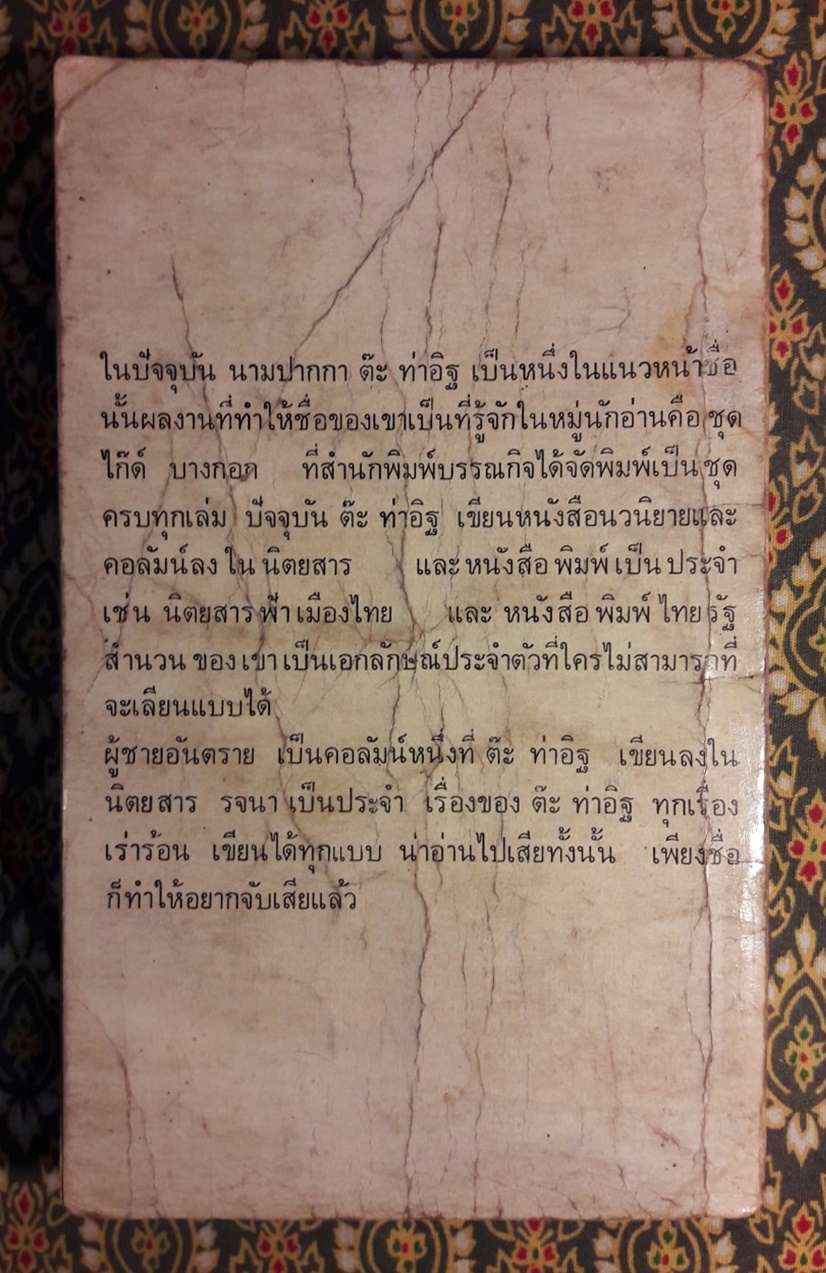 ในปัจจุบัน นามปากกา ต๊ะ ท่าอิฐ เป็นหนึ่งในแนวหน้าชื่อ
นั้นผลงานที่ทำให้ชื่อของเขาเป็นที่รู้จักในหมู่นักอ่านคือ ชุด
ไก๊ด์ บางกอก ที่สำนักพิมพ์บรรณกิจได้จัดพิมพ์เป็นชุด
ครบทุกเล่ม ปัจจุบัน ต๊ะ ท่าอิฐ เขียนหนังสือนวนิยายและ
คอลัมน์ลง ใน นิตยสาร และ หนังสือ พิมพ์ เป็น ประจำ
เช่น นิตยสาร ฟ้า เมืองไทย และ หนังสือ พิมพ์ ไทย รัฐ
สำนวน ของ เขา เป็นเอกลักษณ์ประจำตัวที่ใครไม่สามารถที่
จะเลียนแบบได้
ผู้ชายอันตราย เป็นคอลัมน์หนึ่งที่ ต๊ะ ท่าอิฐ เขียนลงใน
นิตยสาร รจนา เป็นประจำ เรื่องของ ต๊ะ ท่าอิฐ ทุกเรื่อง
เร่าร้อน เขียนได้ทุกแบบ น่าอ่านไปเสียทั้งนั้น เพียงชื่อ
ก็ทำให้อยากจับเสียแล้ว